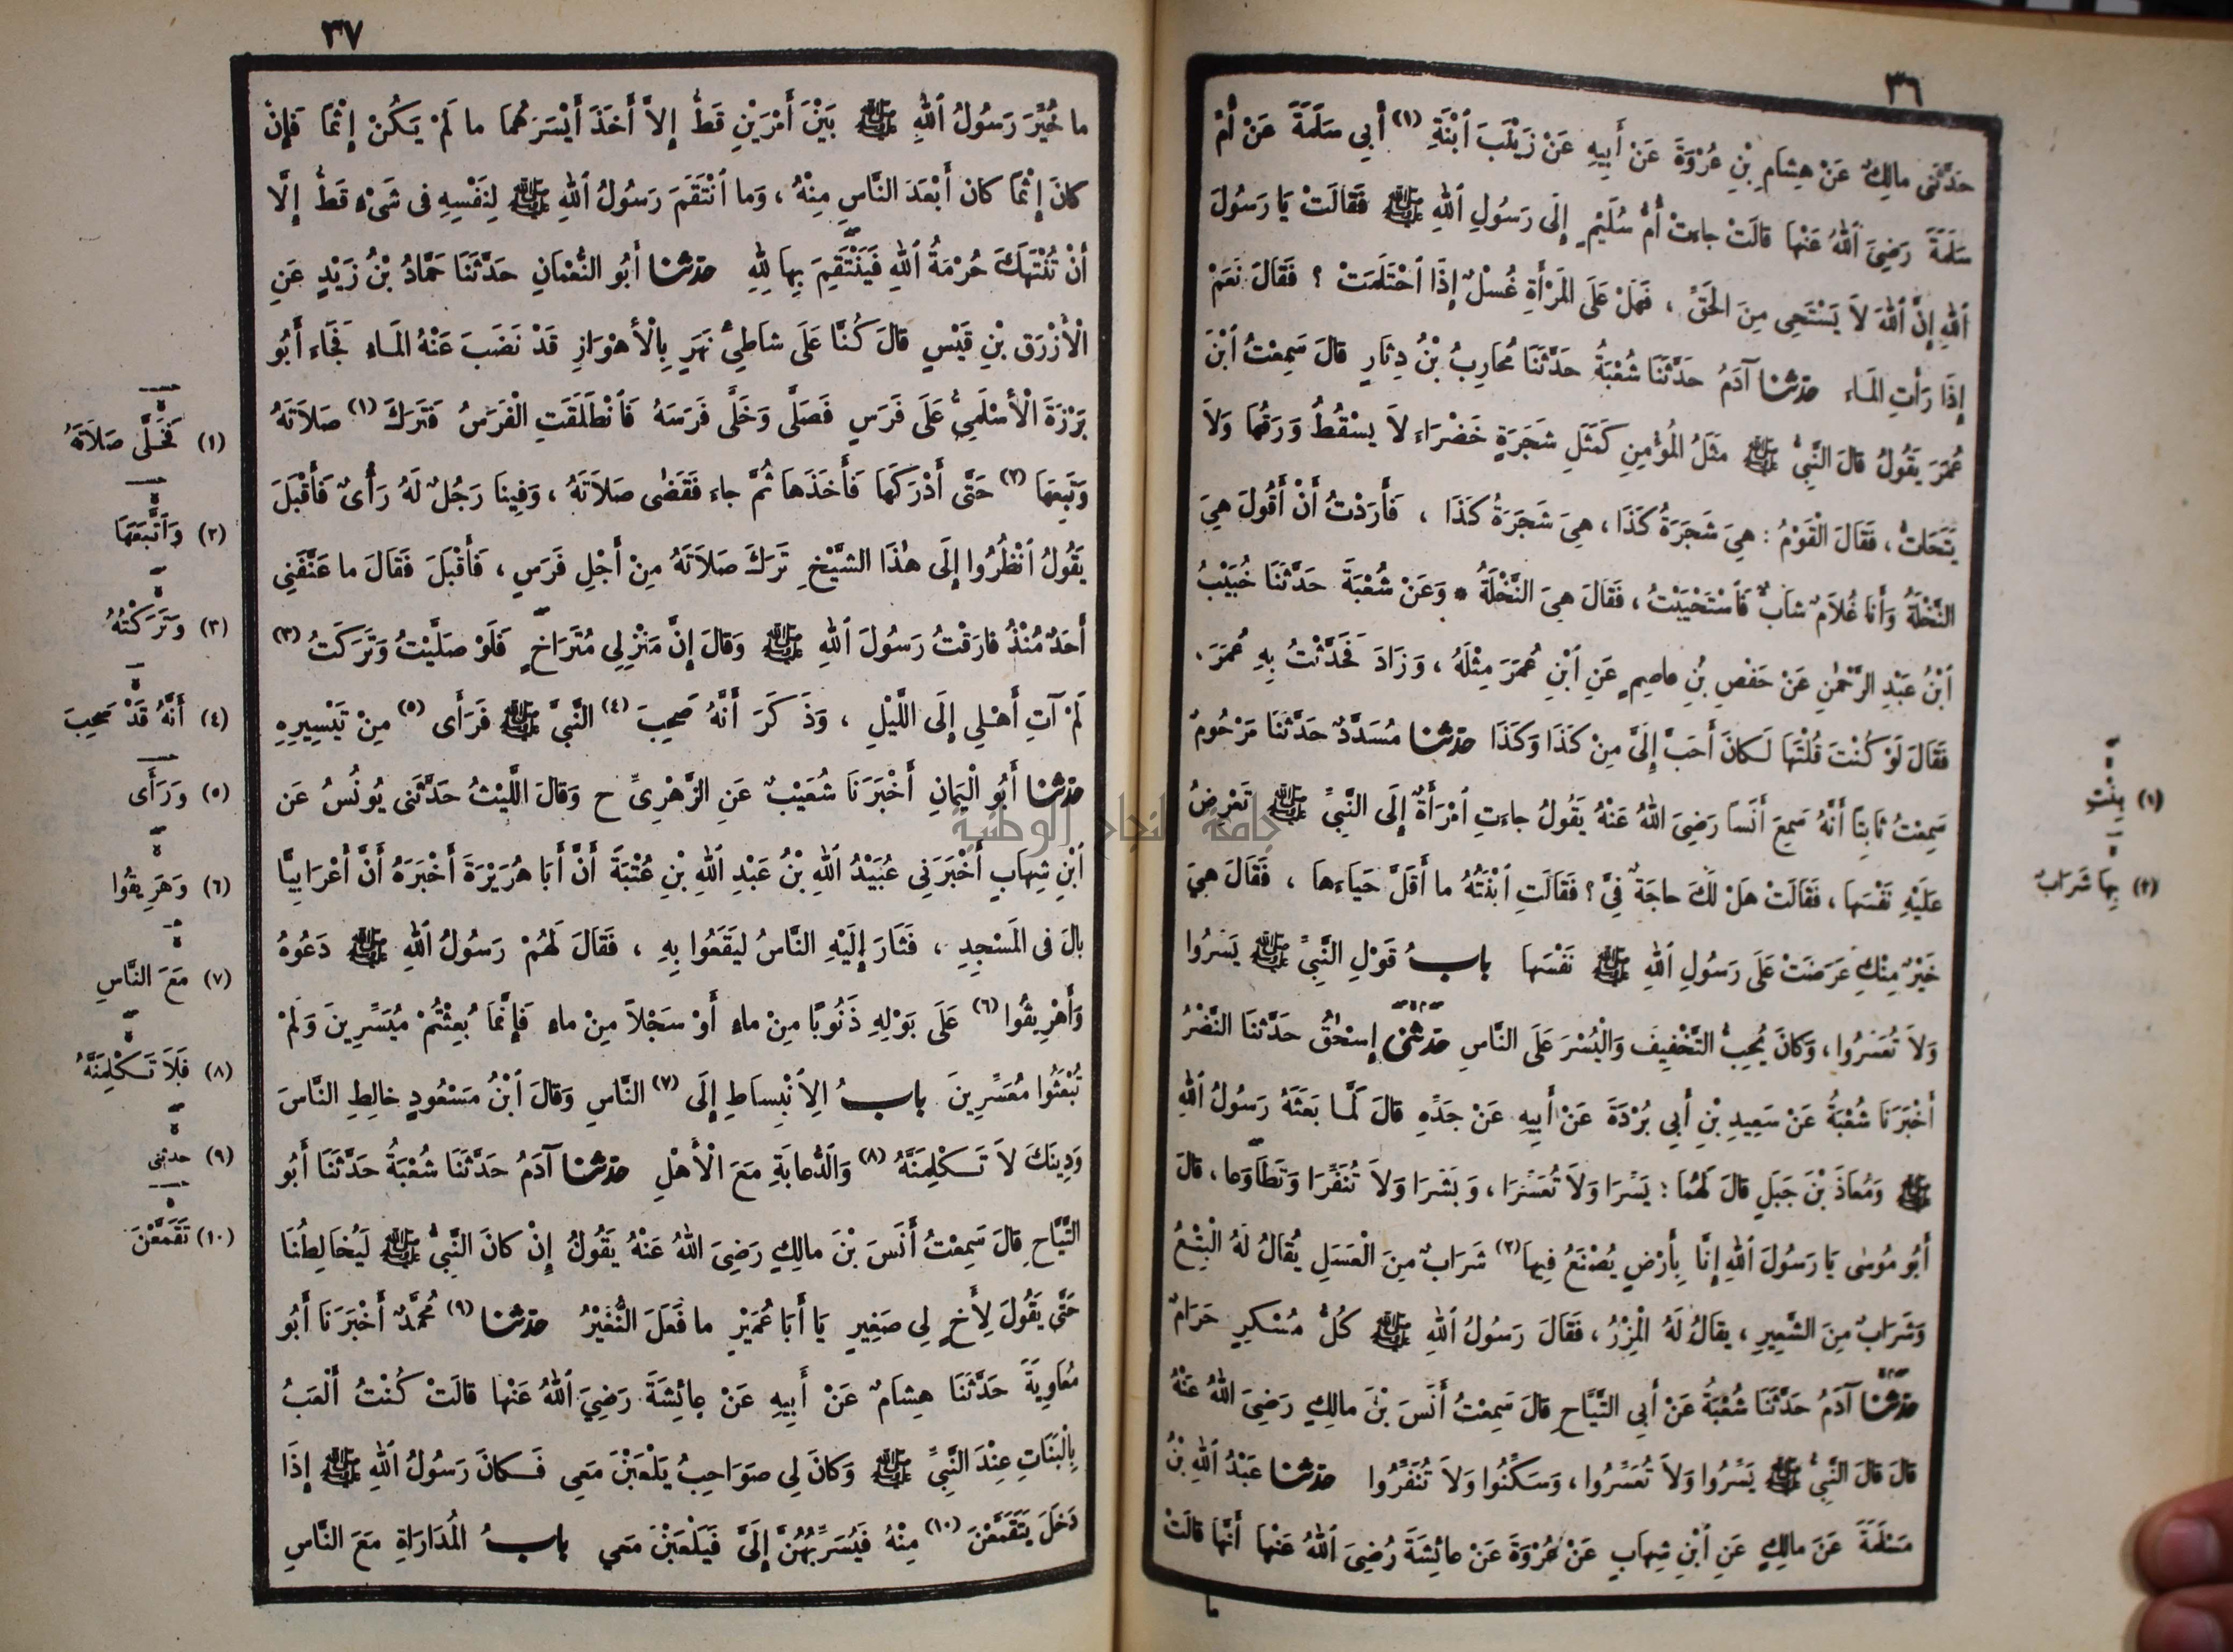 ٣٦
حَدَّثَنِي مالِكٌ عَنْ هِشامِ بْنِ عُرْوَةَ عَنْ أَبِيهِ عَنْ زَيْنَبَ ٱبْنَةِ (١) أَبِي سَلَمَةَ عَنْ أُمِّ
سَلَمَةَ رَضِيَ ٱللّٰهُ عَنْها قالَتْ جاءَتْ أُمُّ سُلَيْمٍ إِلَى رَسُولِ ٱللّٰهِ ﷺ فَقالَتْ يَا رَسُولَ
ٱللّٰهِ إِنَّ ٱللّٰهَ لاَ يَسْتَحِي مِنَ الحَقِّ ، فَهَلْ عَلَى المَرْأَةِ غُسْلٌ إِذَا ٱحْتَلَمَتْ ؟ فَقَالَ نَعَمْ
إِذَا رَأَتِ المَاءَ حدثنا آدَمُ حَدَّثَنَا شُعْبَةُ حَدَّثَنَا مُحارِبُ بْنُ دِثارٍ قالَ سَمِعْتُ ٱبْنَ
عُمَرَ يَقُولُ قالَ النَّبِيُّ ﷺ مَثَلُ المُؤْمِنِ كَمَثَلِ شَجَرَةٍ خَضْرَاءَ لاَ يَسْقُطُ وَرَقُها وَلاَ
يَتَحَاتُّ ، فَقَالَ الْقَوْمُ : هِيَ شَجَرَةُ كَذَا ، هِيَ شَجَرَةُ كَذَا ، فَأَرَدْتُ أَنْ أَقُولَ هِيَ
النَّخْلَةُ وَأَنا غُلاَمٌ شابٌّ فَاسْتَحْيَيْتُ ، فَقَالَ هِيَ النَّخْلَةُ * وَعَنْ شُعْبَةَ حَدَّثَنَا خُبَيْبُ
ٱبْنُ عَبْدِ الرَّحْمٰنِ عَنْ حَفْصِ بْنِ عاصِمٍ عَنِ ٱبْنِ عُمَرَ مِثْلَهُ ، وَزَادَ فَحَدَّثْتُ بِهِ عُمَرَ ،
فَقَالَ لَوْ كُنْتَ قُلْتَها لَكانَ أَحَبَّ إِلَيَّ مِنْ كَذَا وَكَذَا حدثنا مُسَدَّدٌ حَدَّثَنَا مَرْحُومٌ
سَمِعْتُ ثابِتًا أَنَّهُ سَمِعَ أَنَسًا رَضِيَ ٱللّٰهُ عَنْهُ يَقُولُ جاءَتِ ٱمْرَأَةٌ إِلَى النَّبِيِّ ﷺ تَعْرِضُ
عَلَيْهِ نَفْسَها ، فَقَالَتْ هَلْ لَكَ حاجَةٌ فِيَّ ؟ فَقَالَتِ ٱبْنَتُهُ ما أَقَلَّ حَيَاءَها ، فَقَالَ هِيَ
خَيْرٌ مِنْكِ عَرَضَتْ عَلَى رَسُولِ ٱللّٰهِ ﷺ نَفْسَها باب قَوْلِ النَّبِيِّ ﷺ يَسِّرُوا
وَلاَ تُعَسِّرُوا ، وَكانَ يُحِبُّ التَّخْفِيفَ وَالْيُسْرَ عَلَى النَّاسِ حدثني إِسْحٰقُ حَدَّثَنَا النَّضْرُ
أَخْبَرَنَا شُعْبَةُ عَنْ سَعِيدِ بْنِ أَبِي بُرْدَةَ عَنْ أَبِيهِ عَنْ جَدِّهِ قالَ لَمَّا بَعَثَهُ رَسُولُ ٱللّٰهِ
ﷺ وَمُعَاذَ بْنَ جَبَلٍ قالَ لَهُما : يَسِّرَا وَلاَ تُعَسِّرَا ، وَبَشِّرَا وَلاَ تُنَفِّرَا وَتَطَاوَعا ، قالَ
أَبُو مُوسٰى يَا رَسُولَ ٱللّٰهِ إِنَّا بِأَرْضٍ يُصْنَعُ فِيها (٢) شَرَابٌ مِنَ الْعَسَلِ يُقَالُ لَهُ الْبِتْعُ
وَشَرَابٌ مِنَ الشَّعِيرِ ، يقالُ لَهُ الْمِزْرُ ، فَقَالَ رَسُولُ ٱللّٰهِ ﷺ كُلُّ مُسْكِرٍ حَرَامٌ
حدثنا آدَمُ حَدَّثَنَا شُعْبَةُ عَنْ أَبِي التَّيَّاحِ قالَ سَمِعْتُ أَنَسَ بْنَ مالِكٍ رَضِيَ ٱللّٰهُ عَنْهُ
قالَ قالَ النَّبِيُّ ﷺ يَسِّرُوا وَلاَ تُعَسِّرُوا ، وَسَكِّنُوا وَلاَ تُنَفِّرُوا حدثنا عَبْدُ ٱللّٰهِ بْنُ
مَسْلَمَةَ عَنْ مالِكٍ عَنِ ٱبْنِ شِهابٍ عَنْ عُرْوَةَ عَنْ عائِشَةَ رَضِيَ ٱللّٰهُ عَنْها أَنَّها قالَتْ
ما
(١) بِنْتِ
(٢) بِها شَرَابٌ
٣٧
ما خُيِّرَ رَسُولُ ٱللّٰهِ ﷺ بَيْنَ أَمْرَيْنِ قَطُّ إِلاَّ أَخَذَ أَيْسَرَهُما ما لَمْ يَكُنْ إِثْمًا فَإِنْ
كانَ إِثْمًا كانَ أَبْعَدَ النَّاسِ مِنْهُ ، وَما ٱنْتَقَمَ رَسُولُ ٱللّٰهِ ﷺ لِنَفْسِهِ فِي شَيْءٍ قَطُّ إِلَّا
أَنْ تُنْتَهَكَ حُرْمَةُ ٱللّٰهِ فَيَنْتَقِمَ بِها لِلّٰهِ حدثنا أَبُو النُّعْمَانِ حَدَّثَنَا حَمَّادُ بْنُ زَيْدٍ عَنِ
الْأَزْرَقِ بْنِ قَيْسٍ قالَ كُنَّا عَلَى شاطِئِ نَهَرٍ بِالْأَهْوَازِ قَدْ نَضَبَ عَنْهُ المَاءُ فَجَاءَ أَبُو
بَرْزَةَ الْأَسْلَمِيُّ عَلَى فَرَسٍ فَصَلَّى وَخَلَّى فَرَسَهُ فَٱنْطَلَقَتِ الْفَرَسُ فَتَرَكَ (١) صَلاَتَهُ
وَتَبِعَها (٢) حَتَّى أَدْرَكَها فَأَخَذَها ثُمَّ جاءَ فَقَضٰى صَلاَتَهُ ، وَفِينا رَجُلٌ لَهُ رَأْىٌ فَأَقْبَلَ
يَقُولُ ٱنْظُرُوا إِلَى هٰذَا الشَّيْخِ تَرَكَ صَلاَتَهُ مِنْ أَجْلِ فَرَسٍ ، فَأَقْبَلَ فَقَالَ ما عَنَّفَنِي
أَحَدٌ مُنْذُ فارَقْتُ رَسُولَ ٱللّٰهِ ﷺ وَقالَ إِنَّ مَنْزِلِي مُتَرَاخٍ فَلَوْ صَلَّيْتُ وَتَرَكْتُ (٣)
لَمْ آتِ أَهْلِي إِلَى اللَّيْلِ ، وَذَكَرَ أَنَّهُ صَحِبَ (٤) النَّبِيَّ ﷺ فَرَأَى (٥) مِنْ تَيْسِيرِهِ
حدثنا أَبُو الْيَمانِ أَخْبَرَنَا شُعَيْبٌ عَنِ الزُّهْرِيِّ ح وَقالَ اللَّيْثُ حَدَّثَنِي يُونُسُ عَنِ
ٱبْنِ شِهَابٍ أَخْبَرَنِي عُبَيْدُ ٱللّٰهِ بْنُ عَبْدِ ٱللّٰهِ بْنِ عُتْبَةَ أَنَّ أَبَا هُرَيْرَةَ أَخْبَرَهُ أَنَّ أَعْرَابِيًّا
بالَ فِي المَسْجِدِ ، فَثَارَ إِلَيْهِ النَّاسُ لِيَقَعُوا بِهِ ، فَقَالَ لَهُمْ رَسُولُ ٱللّٰهِ ﷺ دَعُوهُ
وَأَهْرِيقُوا (٦) عَلَى بَوْلِهِ ذَنُوبًا مِنْ ماءٍ أَوْ سَجْلاً مِنْ ماءٍ فَإِنَّمَا بُعِثْتُمْ مُيَسِّرِينَ وَلَمْ
تُبْعَثُوا مُعَسِّرِينَ باب الِٱنْبِسَاطِ إِلَى (٧) النَّاسِ وَقالَ ٱبْنُ مَسْعُودٍ خالِطِ النَّاسَ
وَدِينَكَ لاَ تَكْلِمَنَّهُ (٨) وَالدُّعابَةِ مَعَ الْأَهْلِ حدثنا آدَمُ حَدَّثَنَا شُعْبَةُ حَدَّثَنَا أَبُو
التَّيَّاحِ قالَ سَمِعْتُ أَنَسَ بْنَ مالِكٍ رَضِيَ ٱللّٰهُ عَنْهُ يَقُولُ إِنْ كانَ النَّبِيُّ ﷺ لَيُخَالِطُنَا
حَتَّى يَقُولَ لِأَخٍ لِي صَغِيرٍ يَا أَبَا عُمَيْرٍ ما فَعَلَ النُّغَيْرُ حدثنا (٩) مُحَمَّدٌ أَخْبَرَنَا أَبُو
مُعَاوِيَةَ حَدَّثَنَا هِشامٌ عَنْ أَبِيهِ عَنْ عائِشَةَ رَضِيَ ٱللّٰهُ عَنْها قالَتْ كُنْتُ أَلْعَبُ
بِالْبَنَاتِ عِنْدَ النَّبِيِّ ﷺ وَكانَ لِي صَوَاحِبُ يَلْعَبْنَ مَعِي فَكانَ رَسُولُ ٱللّٰهِ ﷺ إِذَا
دَخَلَ يَتَقَمَّعْنَ (١٠) مِنْهُ فَيُسَرِّبُهُنَّ إِلَيَّ فَيَلْعَبْنَ مَعِي باب المُدَارَاةِ مَعَ النَّاسِ
(١) فَخَلَّى صَلاَتَهُ
(٢) وَٱتَّبَعَهَا
(٣) وَتَرَكْتُهُ
(٤) أَنَّهُ قَدْ صَحِبَ
(٥) وَرَأَى
(٦) وَهَرِيقُوا
(٧) مَعَ النَّاسِ
(٨) فَلاَ تَكْلِمَنَّهُ
(٩) حدثني
(١٠) تَقَمَّعْنَ
جامعة النجاح الوطنية